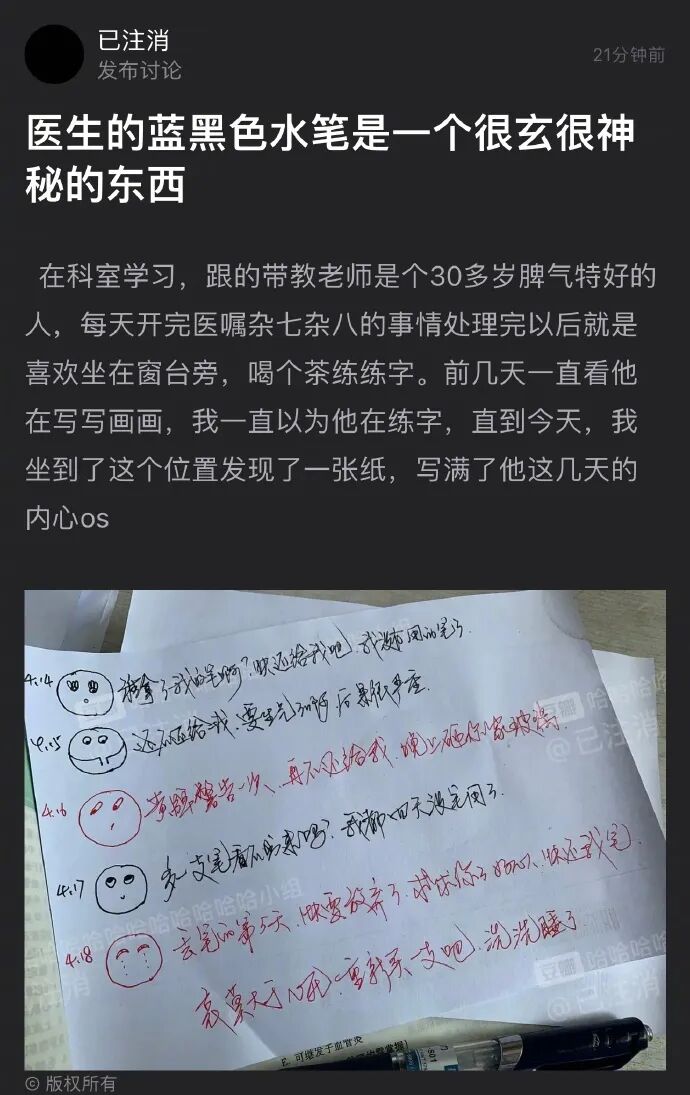 已注消
发布讨论
21分钟前
医生的蓝黑色水笔是一个很玄很神
秘的东西
在科室学习，跟的带教老师是个30多岁脾气特好的
人，每天开完医嘱杂七杂八的事情处理完以后就是
喜欢坐在窗台旁，喝个茶练练字。前几天一直看他
在写写画画，我一直以为他在练字，直到今天，我
坐到了这个位置发现了一张纸，写满了他这几天的
内心os
4.14 谁拿了我的笔啊？快还给我吧，我没有用的笔了
4.15 还不还给我，要生气了啊 后果很严重.
4.16 黄牌警告一次，再不还给我，晚上砸你家玻璃.
4.17 多支笔看不的病吗？我都四天没笔用了.
4.18 丢笔的第5天，快要放弃了，求求你了，快还我笔.
哀莫大于心死，重新买一支吧，洗洗睡了.
豆瓣 哈哈哈哈哈哈哈小组
@已注消
E. 可继发于血管炎
© 版权所有